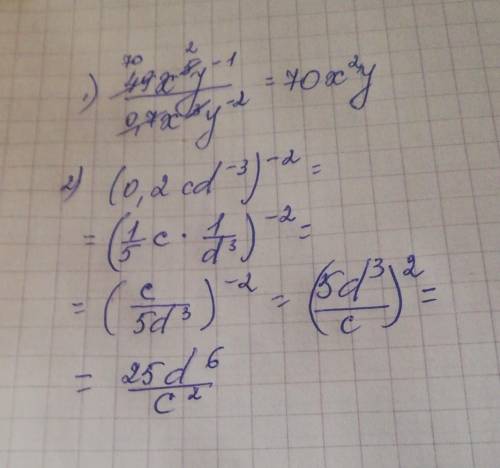 1.) 49x y⁻¹ / 0,7x y⁻² = 70x²y
70 2
2) (0,2 cd⁻³)⁻² =
= (1/5 c · 1/d³)⁻² =
= (c / 5d³)⁻² = (5d³ / c)² =
= 25d⁶ / c²